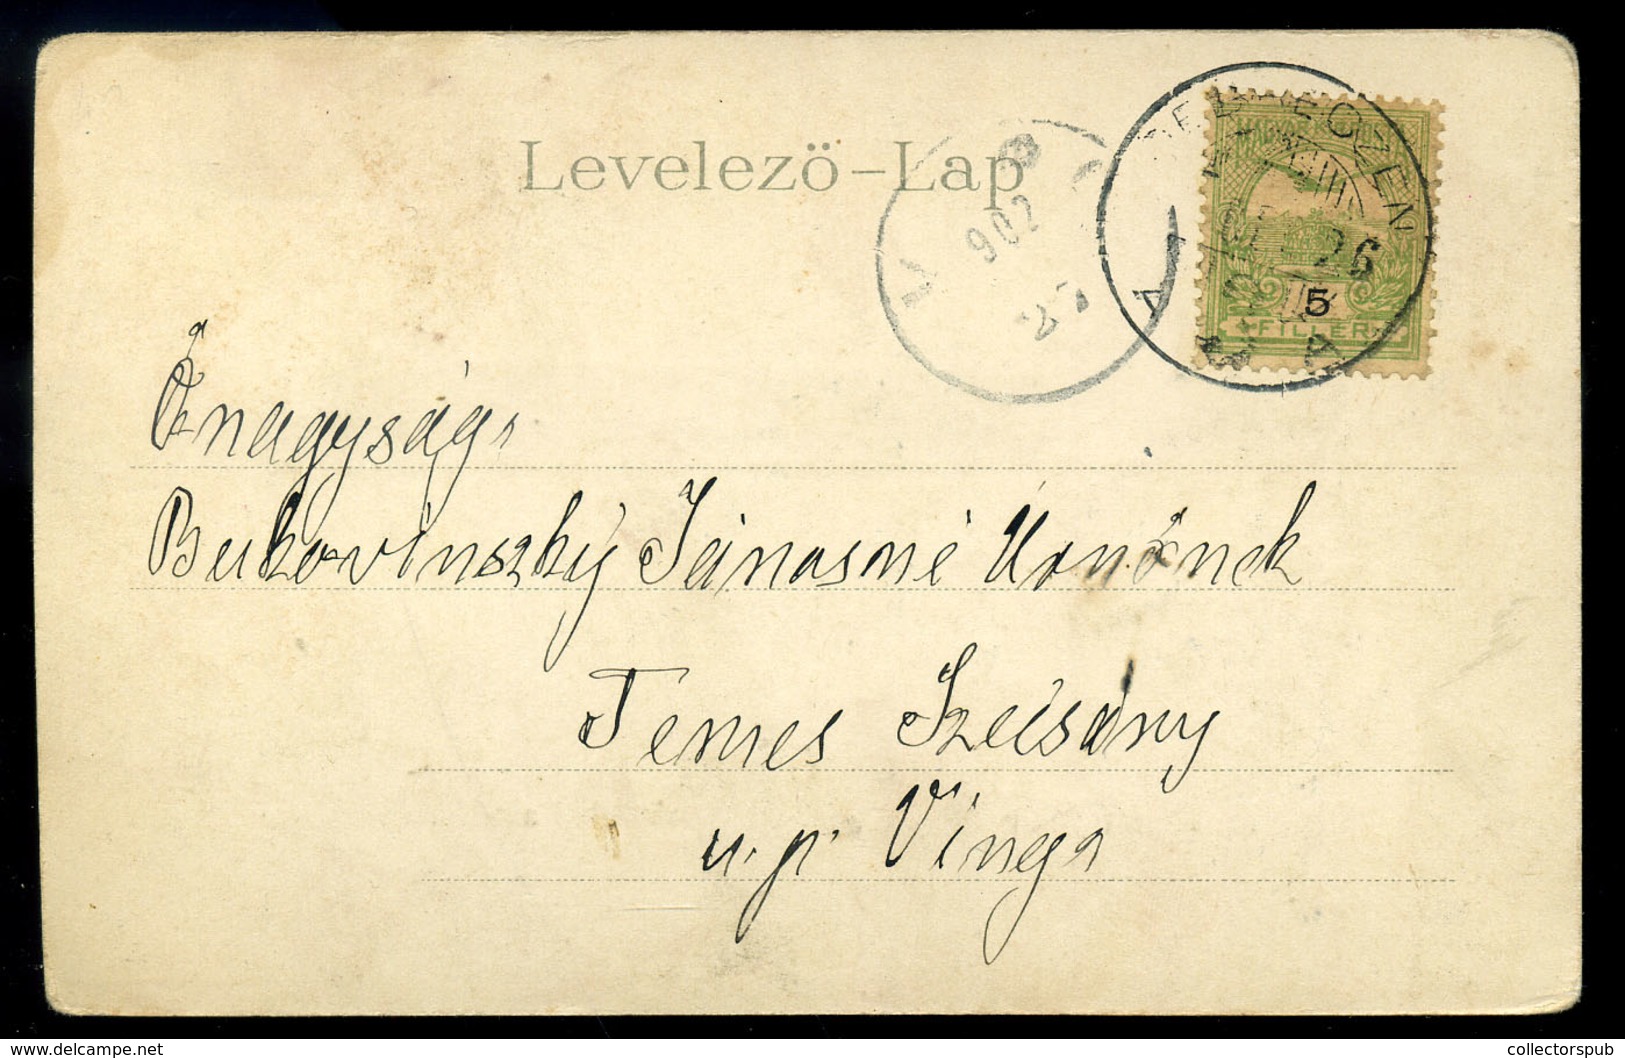 Levelező-Lap
DEBRECZEN
902
26
27
5
FILLÉR
Őnagysága
Bukovinszky Jánosné Urnőnek
Temes Szécsány
u.p. Vinga
delcampe.net
collectorspub